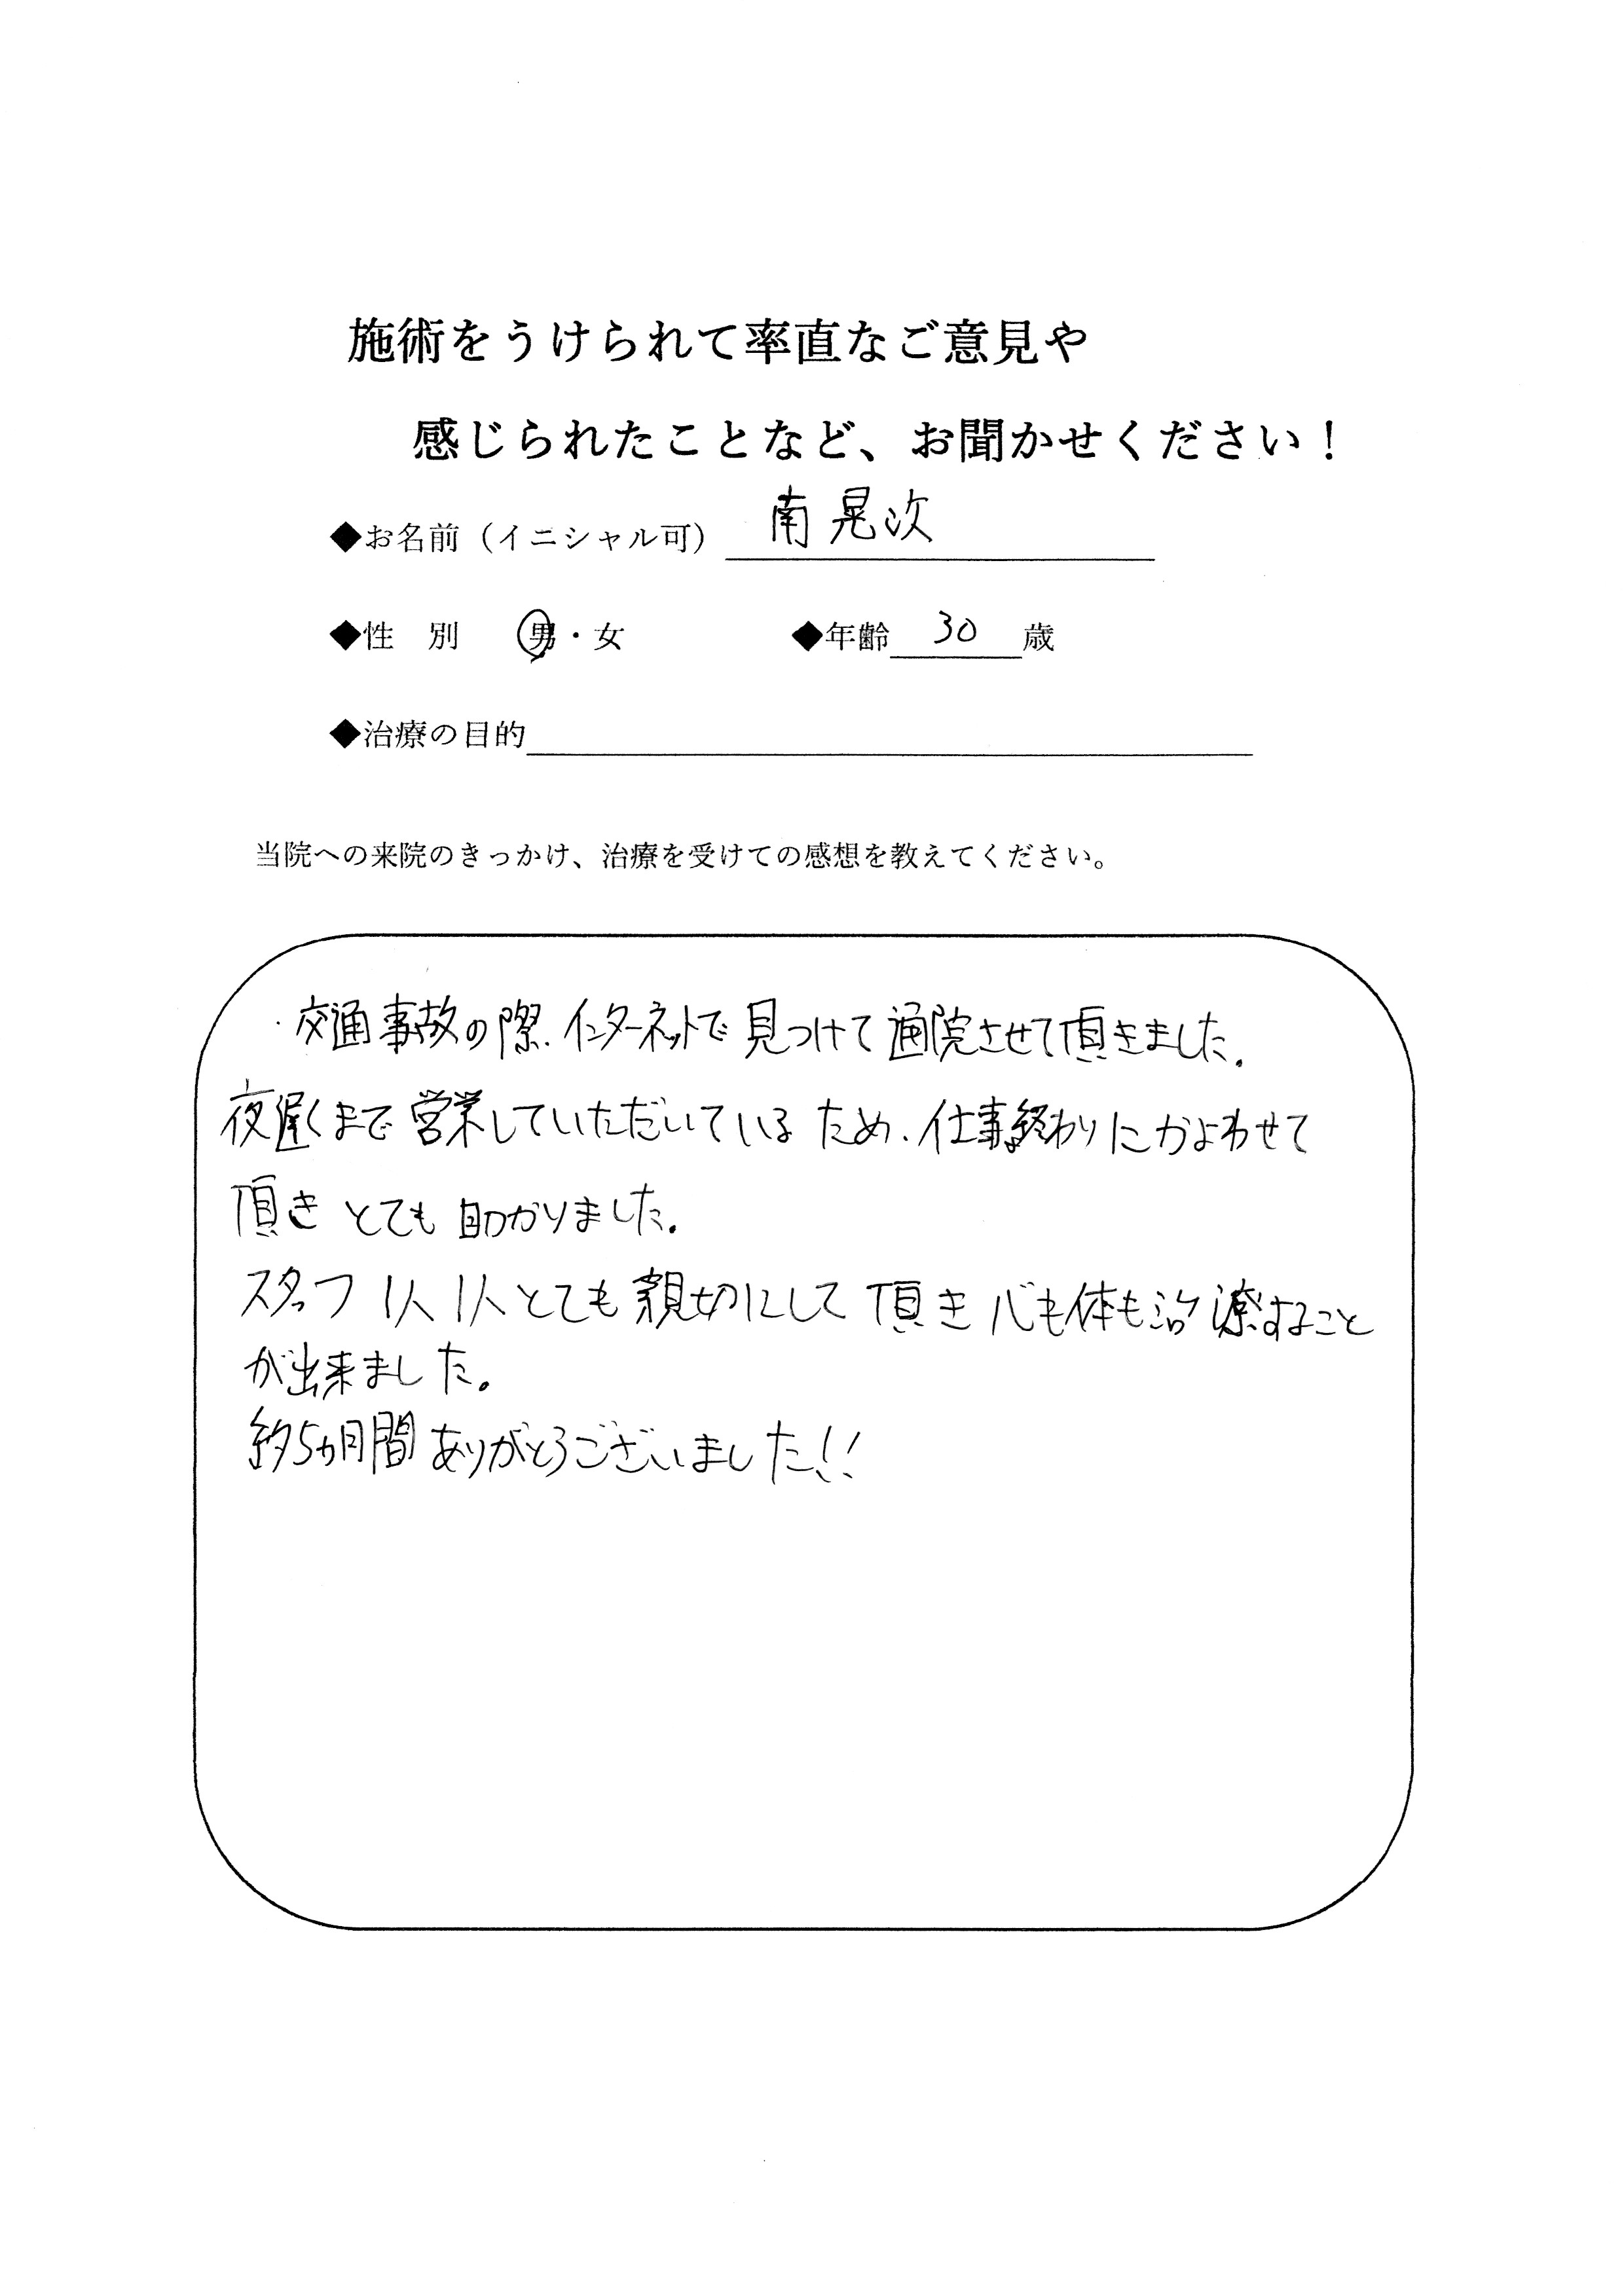 施術をうけられて率直なご意見や
感じられたことなど、お聞かせください！
◆お名前（イニシャル可） 南 晃次
◆性　別　男・女　◆年齢 30 歳
◆治療の目的
当院への来院のきっかけ、治療を受けての感想を教えてください。
交通事故の際、インターネットで見つけて通院させて頂きました。
夜遅くまで営業していただいているため、仕事終わりにかよわせて
頂きとても助かりました。
スタッフ1人1人とても親切にして頂き心も体も治療すること
が出来ました。
約5ヵ月間ありがとうございました!!